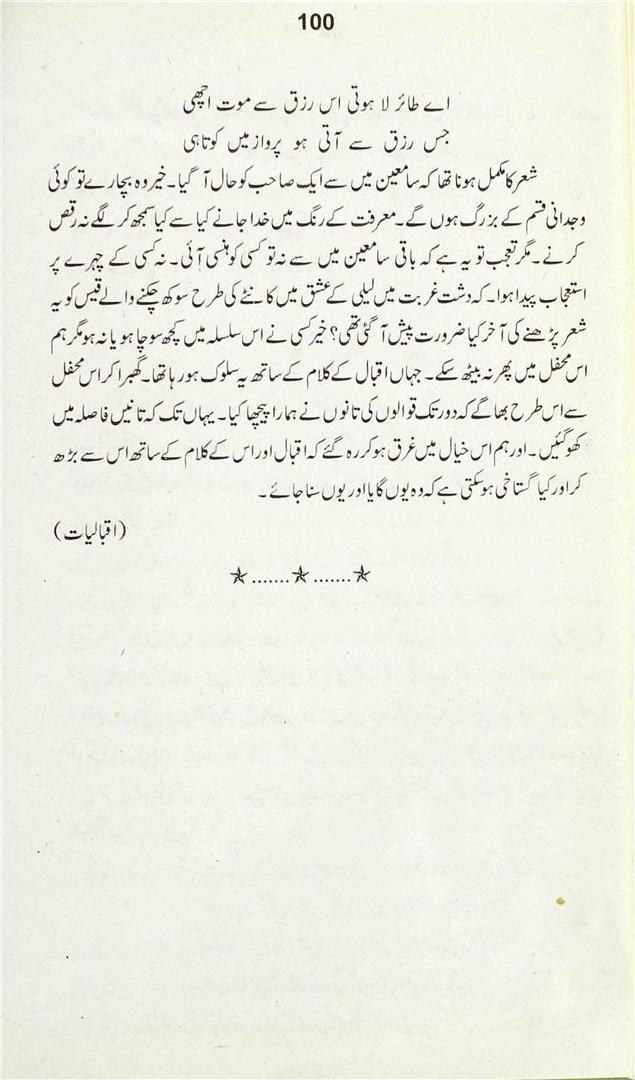 100
اے طائر لا ہوتی اس رزق سے موت اچھی
جس رزق سے آتی ہو پرواز میں کوتاہی
شعر کا مکمل ہونا تھا کہ سامعین میں سے ایک صاحب کو حال آ گیا۔ خیر وہ بچارے تو کوئی
وجدانی قسم کے بزرگ ہوں گے۔ معرفت کے رنگ میں خدا جانے کیا سے کیا سمجھ کر لگے نہ رقص
کرنے۔ مگر تعجب تو یہ ہے کہ باقی سامعین میں سے نہ تو کسی کو ہنسی آئی۔ نہ کسی کے چہرے پر
استعجاب پیدا ہوا۔ کہ دشت غربت میں لیلی کے عشق میں کانٹے کی طرح سوکھ چکنے والے قیس کو یہ
شعر پڑھنے کی آخر کیا ضرورت پیش آ گئی تھی؟ خیر کسی نے اس سلسلہ میں کچھ سوچا ہو یا نہ ہو مگر ہم
اس محفل میں پھر نہ بیٹھ سکے۔ جہاں اقبال کے کلام کے ساتھ یہ سلوک ہو رہا تھا۔ گھبرا کر اس محفل
سے اس طرح بھاگے کہ دور تک قوالوں کی تانوں نے ہمارا پیچھا کیا۔ یہاں تک کہ تانیں فاصلہ میں
کھو گئیں۔ اور ہم اس خیال میں غرق ہو کر رہ گئے کہ اقبال اور اس کے کلام کے ساتھ اس سے بڑھ
کر اور کیا گستاخی ہو سکتی ہے کہ وہ یوں گایا اور یوں سنا جائے۔
(اقبالیات)
☆.......☆.......☆